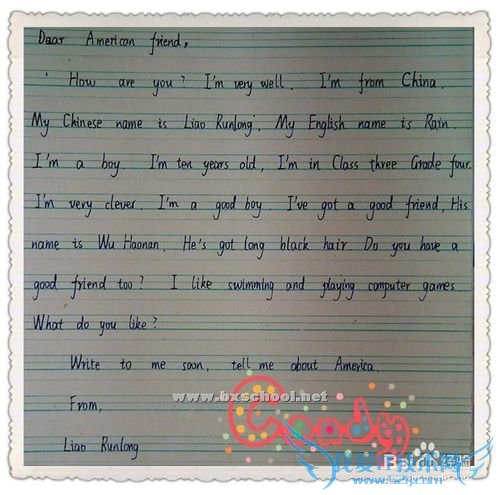 Dear American friend,
How are you? I'm very well. I'm from China.
My Chinese name is Liao Runlong. My English name is Rain.
I'm a boy I'm ten years old, I'm in Class three Grade four.
I'm very clever. I'm a good boy. I've got a good friend, His
name is Wu Haonan. He's got long black hair. Do you have a
good friend too? I like swimming and playing computer games
What do you like?
Write to me soon, tell me about America.
www.bxschool.net
From,
Candy
Liao Runlong
Bai 经验